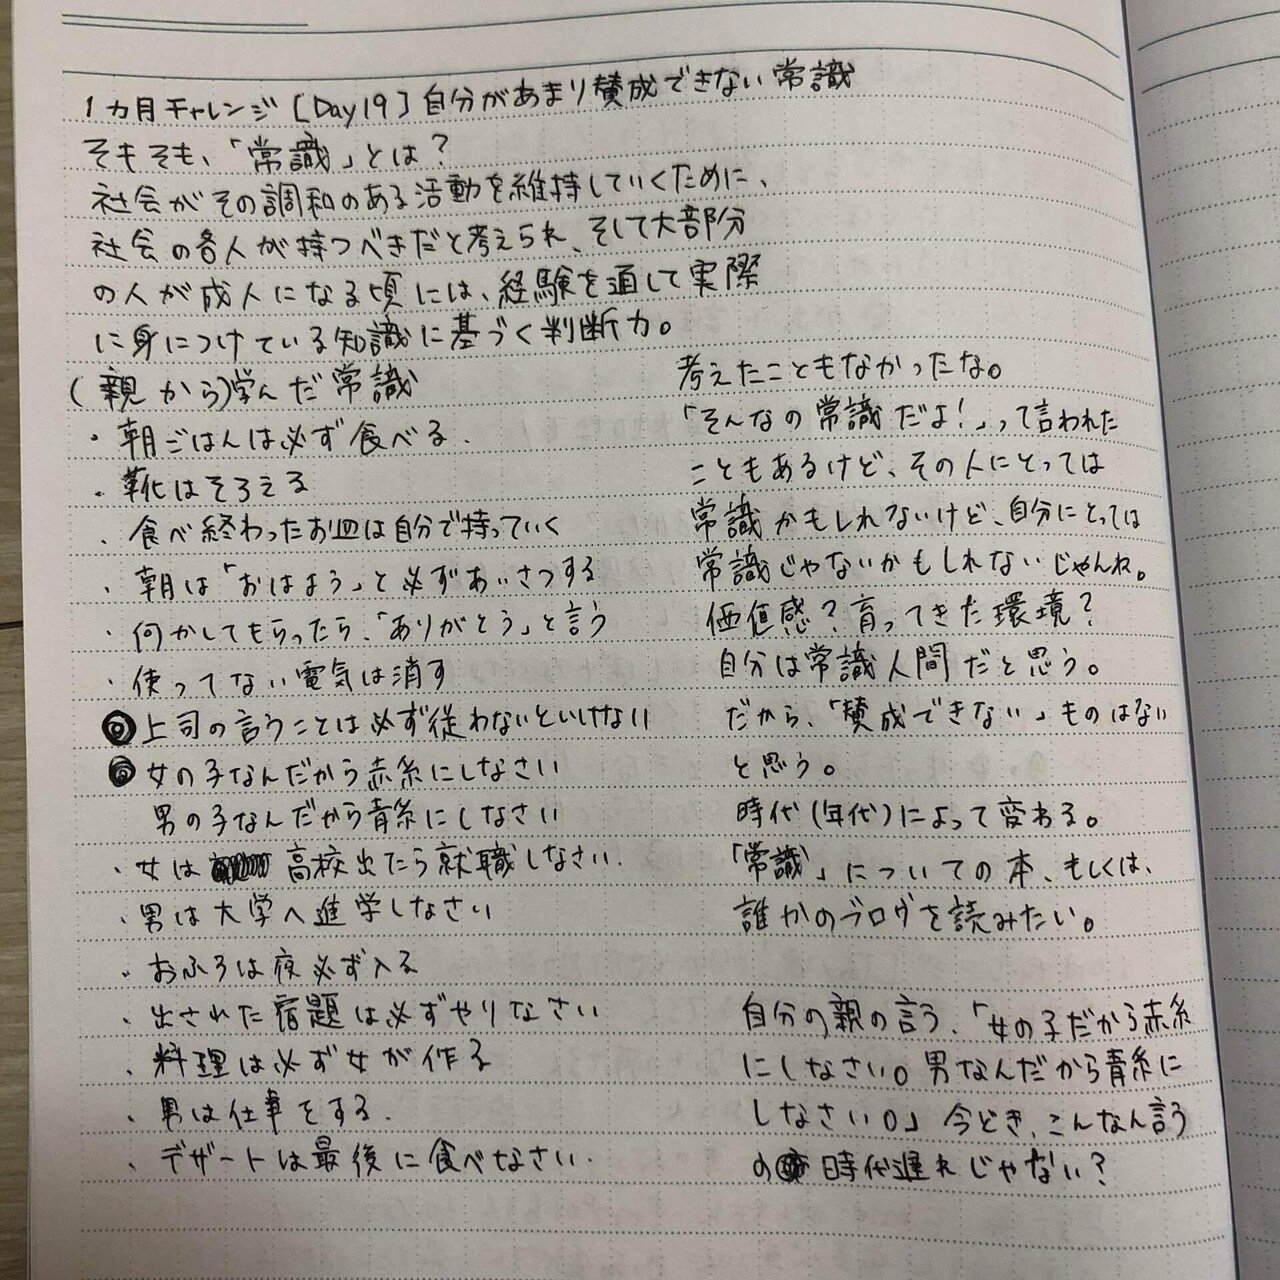 1ヵ月チャレンジ[Day19]自分があまり賛成できない常識
そもそも、「常識」とは?
社会がその調和のある活動を維持していくために、
社会の各人が持つべきだと考えられ、そして大部分
の人が成人になる頃には、経験を通して実際
に身につけている知識に基づく判断力。
(親から)学んだ常識
・朝ごはんは必ず食べる.
・靴はそろえる
・食べ終わったお皿は自分で持っていく
・朝は「おはよう」と必ずあいさつする
・何かしてもらったら、「ありがとう」と言う
・使ってない電気は消す
◎上司の言うことは必ず従わないといけない
◎女の子なんだから赤系にしなさい
男の子なんだから青系にしなさい
・女は高校出たら就職しなさい.
・男は大学へ進学しなさい
・おふろは夜必ず入る
・出された宿題は必ずやりなさい
・料理は必ず女が作る
・男は仕事をする.
・デザートは最後に食べなさい.
考えたこともなかったな。
「そんなの常識だよ!」って言われた
こともあるけど、その人にとっては
常識かもしれないけど、自分にとっては
常識じゃないかもしれないじゃんね。
価値感?育ってきた環境?
自分は常識人間だと思う。
だから、「賛成できない」ものはない
と思う。
時代(年代)によって変わる。
「常識」についての本、もしくは、
誰かのブログを読みたい。
自分の親の言う、「女の子だから赤系
にしなさい。男なんだから青系に
しなさい。」今どき、こんなん言う
の時代遅れじゃない?